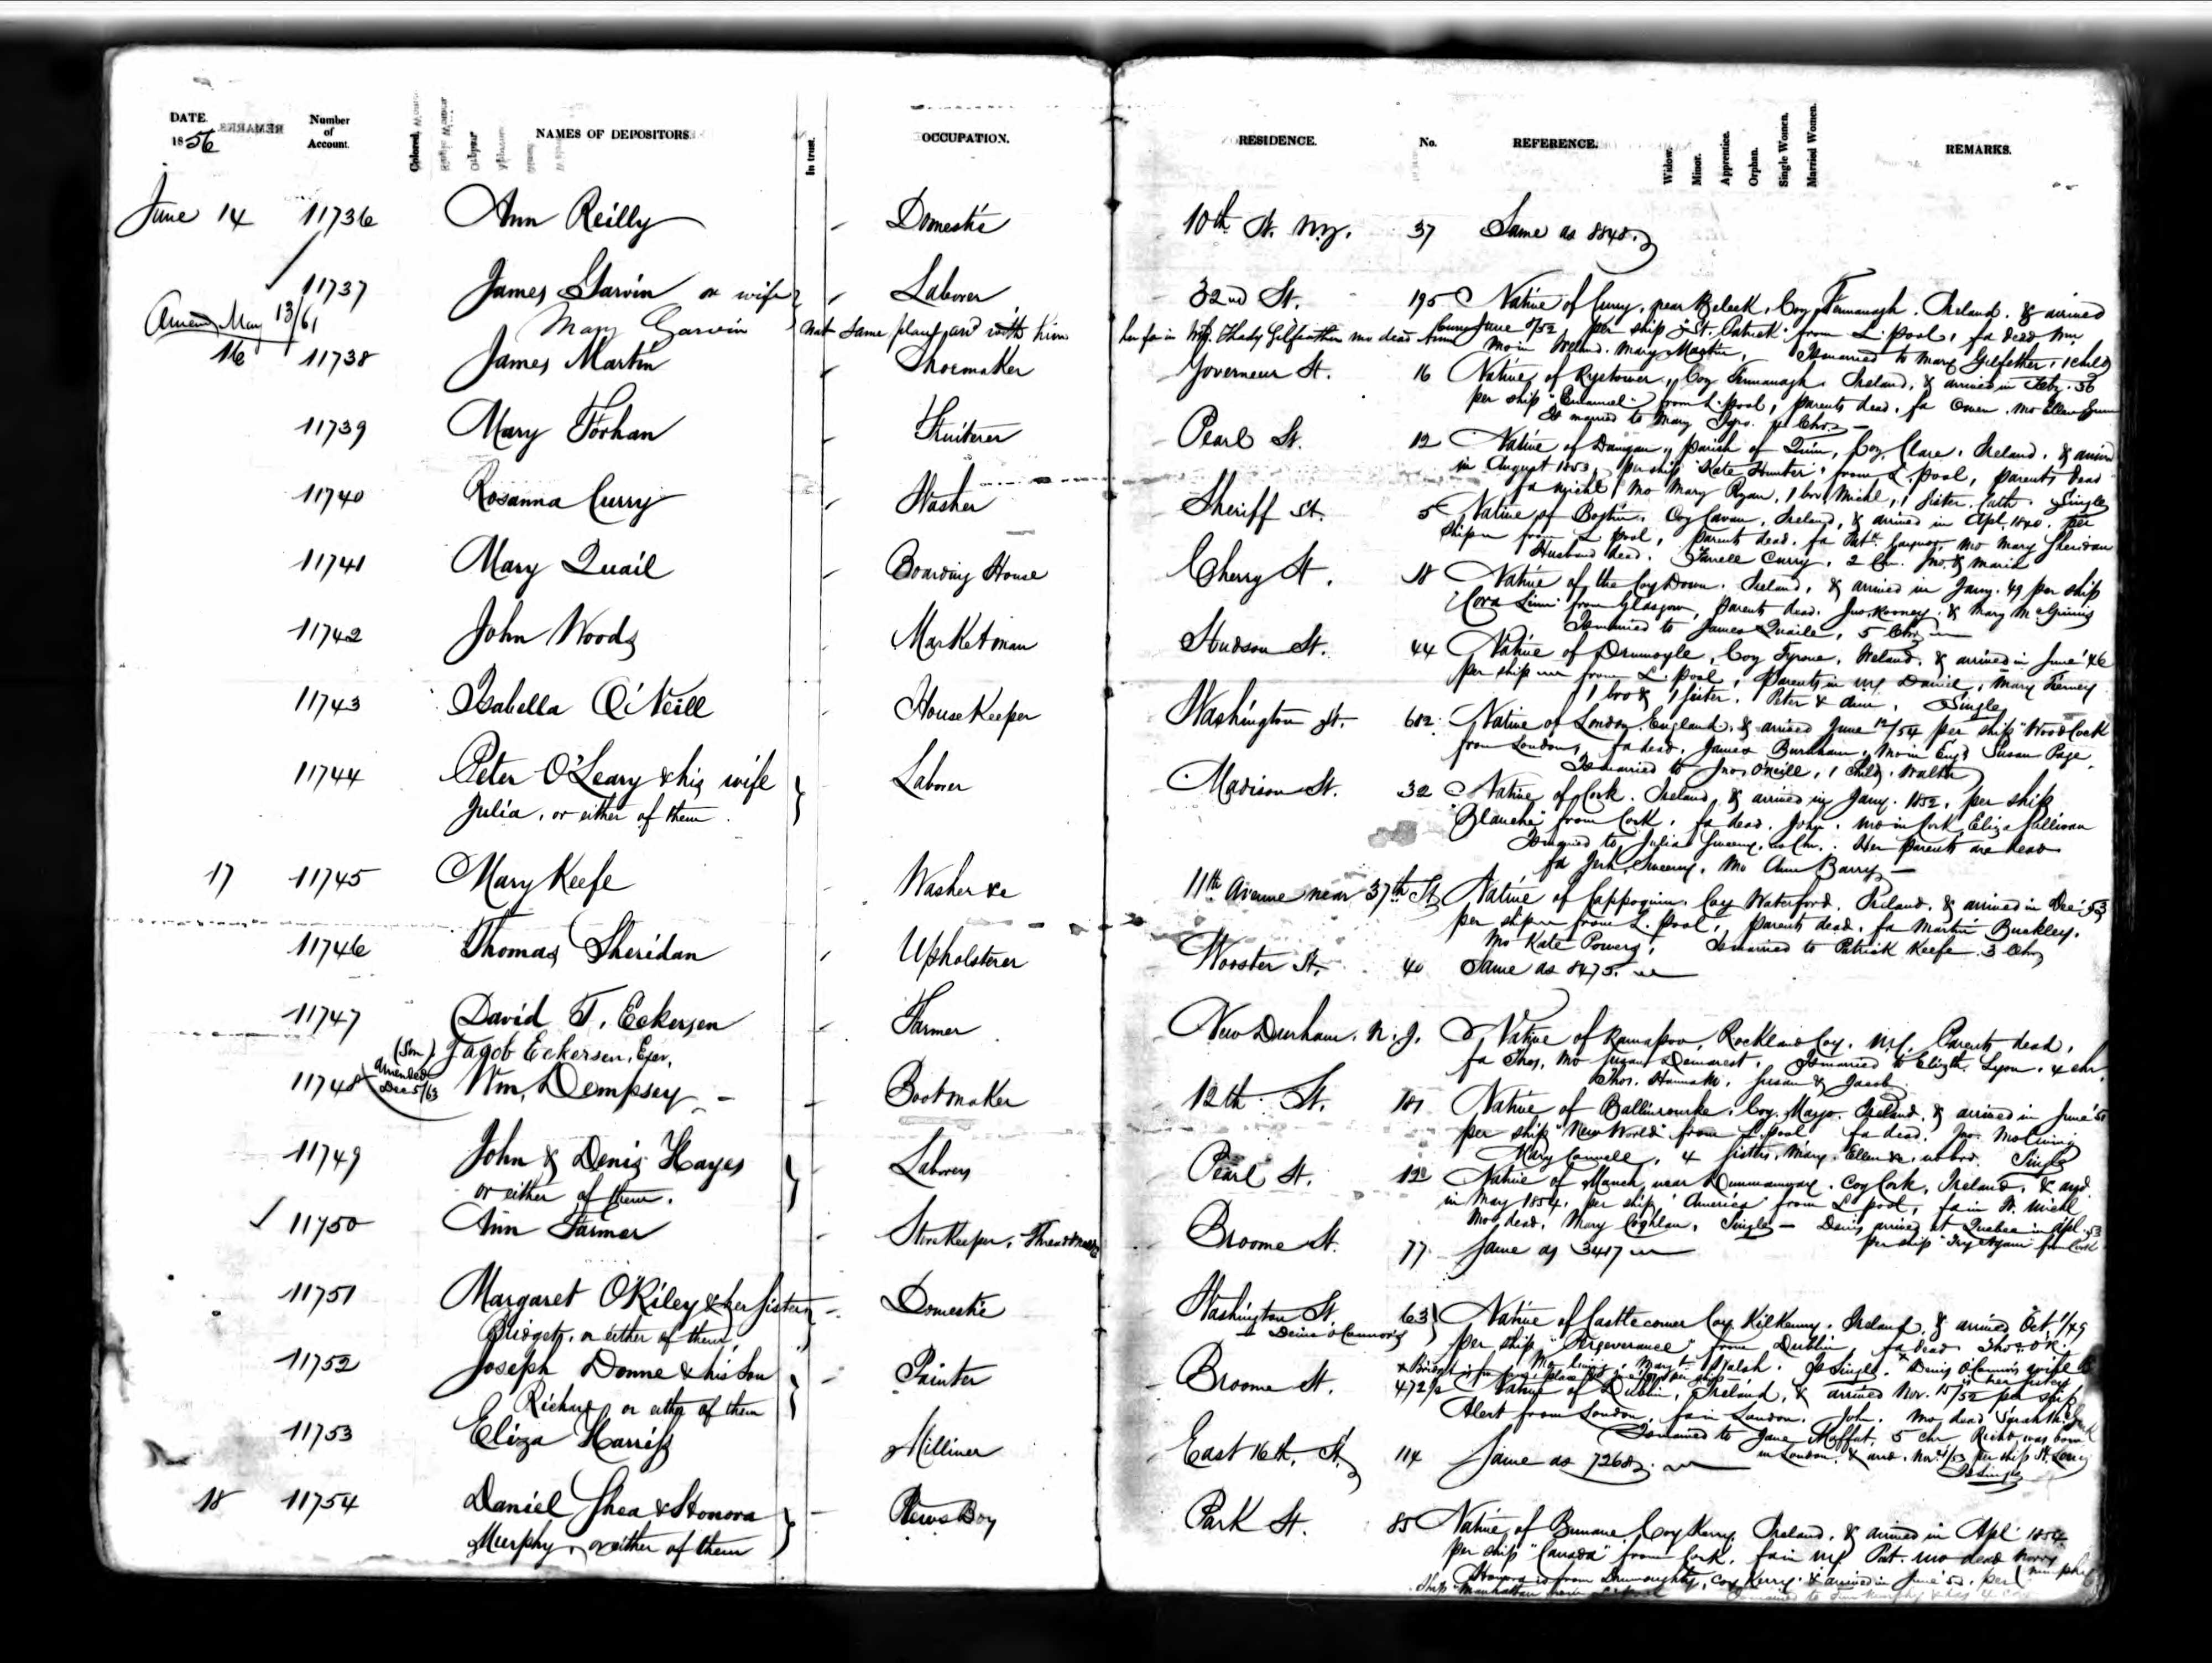 DATE. 1856 Number of Account. NAMES OF DEPOSITORS. In trust. OCCUPATION. RESIDENCE. No. REFERENCE. Widow. Minor. Apprentice. Orphan. Single Women. Married Women. REMARKS.
June 14 11736 Ann Reilly Domestic 10th St. N.Y. 37 Same as 8848.
11737 James Garvin or wife Laborer 32nd St. 195 Native of Curry, near Beleek, Coy Fermanagh. Ireland. & arrived
Amend May 13/61 Mary Garvin Nat same place, arrd with him her fa in Thady Gilfeather mo dead
June 9/52 per ship "St. Patrick" from L.pool, fa dead Wm
mo in Ireland. Mary Martin, Is married to Mary Gilfeather, 1 child
16 11738 James Martin Shoemaker Governeur St. 16 Native of Coy Fermanagh. Ireland, & arrived in Feby. 56
per ship from L.pool, parents dead. fa Owen. mo Ellen
Is married to Mary 4 Chn.
11739 Mary Forhan Fruiterer Pearl St. 12 Native of Dangan, parish of Quin, Coy. Clare. Ireland. & arrived
in August 1853, per ship "Kate Hunter" from L.pool, parents dead
fa Michl, mo Mary Ryan, 1 bro. Michl, 1 sister. Cath. Single
11740 Rosanna Curry Washer Sheriff St. 5 Native of Coy Cavan, Ireland, & arrived in Apl. 1840. per
ship from L.pool, parents dead. fa Patk. Gaynor, mo Mary Sheridan
Husband dead. Farrell Curry. 2 Ch. Jno. & Maria
11741 Mary Quail Boarding House Cherry St. 18 Native of the Coy Down. Ireland, & arrived in Jany. 49 per ship
"Cora Linn" from Glasgow, parents dead. Jno. Rooney. & Mary McGinnis
Is married to James Quaile, 5 Chn
11742 John Woods Marketman Hudson St. 44 Native of Drumoyle, Coy Tyrone, Ireland, & arrived in June '46
per ship from L.pool, Parents in NY Daniel, Mary Tierney
1 bro & 1 sister. Peter & Ann. Single
11743 Isabella O'Neill House Keeper Washington St. 682 Native of London. England. & arrived June 12/54 per ship "Woodcock
from London, fa dead. James Burnham, mo in Engd Susan Page.
Is married to Jno. O'Neill, 1 child. Walter
11744 Peter O'Leary & his wife Laborer Madison St. 32 Native of Cork. Ireland & arrived in Jany. 1852. per ship
Julia, or either of them. "Blanche" from Cork. fa dead. John. mo in Cork, Eliza Sullivan
Is married to Julia Sweeny, no Chn. Her parents are dead
fa Jerh. Sweeny. Mo Ann Barry
17 11745 Mary Keefe Washer &c 11th Avenue near 37th St. Native of Cappoquin. Coy Waterford. Ireland. & arrived in Dec '53
per ship from L.pool, parents dead. fa Martin Buckley.
mo Kate Powers, Is married to Patrick Keefe. 3 Chn
11746 Thomas Sheridan Upholsterer Wooster St. 40 Same as 8475.
11747 David T. Eckersen Farmer New Durham. N.J. Native of Ramapoo, Rockland Coy. NY. Parents dead.
(Son) Jacob Eckersen, Exer. fa Thos, mo Susan Demarest. Is married to Elizth. Lyon. 4 chr.
Thos. Hannah. Susan & Jacob
11748 Amended Dec 5/63 Wm. Dempsey Bootmaker 12th St. 181 Native of Ballinrourke. Coy. Mayo. Ireland. & arrived in June '51
per ship "New World" from L.pool fa dead. Jno. Mo living
Mary Connell, 4 sisters, Mary. Ellen &c. no bro. Single
11749 John & Denis Hayes Laborers Pearl St. Native of Manch, near Dunmanway. Coy Cork, Ireland. & arrd.
or either of them. in May 1854. per ship "America" from L.pool, fa in Id. Michl
Mo dead, Mary Coghlan, Single — Denis arrived at Quebec in Apl. 53
per ship "Try Again" fm Cork
11750 Ann Farmer Storekeeper, Thread Broome St. 77 Same as 3417
11751 Margaret O'Riley & her sister Domestic Washington St. 63 Native of Castlecomer Coy. Kilkenny. Ireland, & arrived Oct 1/49
Bridget, or either of them. Denis O'Connor's per ship "Perseverance" from Dublin fa dead Thos. O'R.
Mo living. Mary Walsh. Is Single. Denis O'Connor's wife is her sister
11752 Joseph Donne & his Son Painter Broome St. 472½ Native of Dublin, Ireland, & arrived Nov. 15/52 per ship
Richard or either of them Alert from London, fa in London. John. Mo dead Sarah
Is married to Jane Moffat, 5 chr Richd was born
in London & arrd. Nov. per ship
11753 Eliza Harriss Milliner East 16th St. 114 Same as 7268.
Is single
18 11754 Daniel Shea & Honora News Boy Park St. 85 Native of Bunane, Coy Kerry Ireland. & arrived in Apl 1854
Murphy or either of them per ship "Canada" from Cork. fa in NY Pat. mo dead Norry Murphy
Honora is from Coy Kerry & arrived in June per
ship "Manhattan" from L.pool